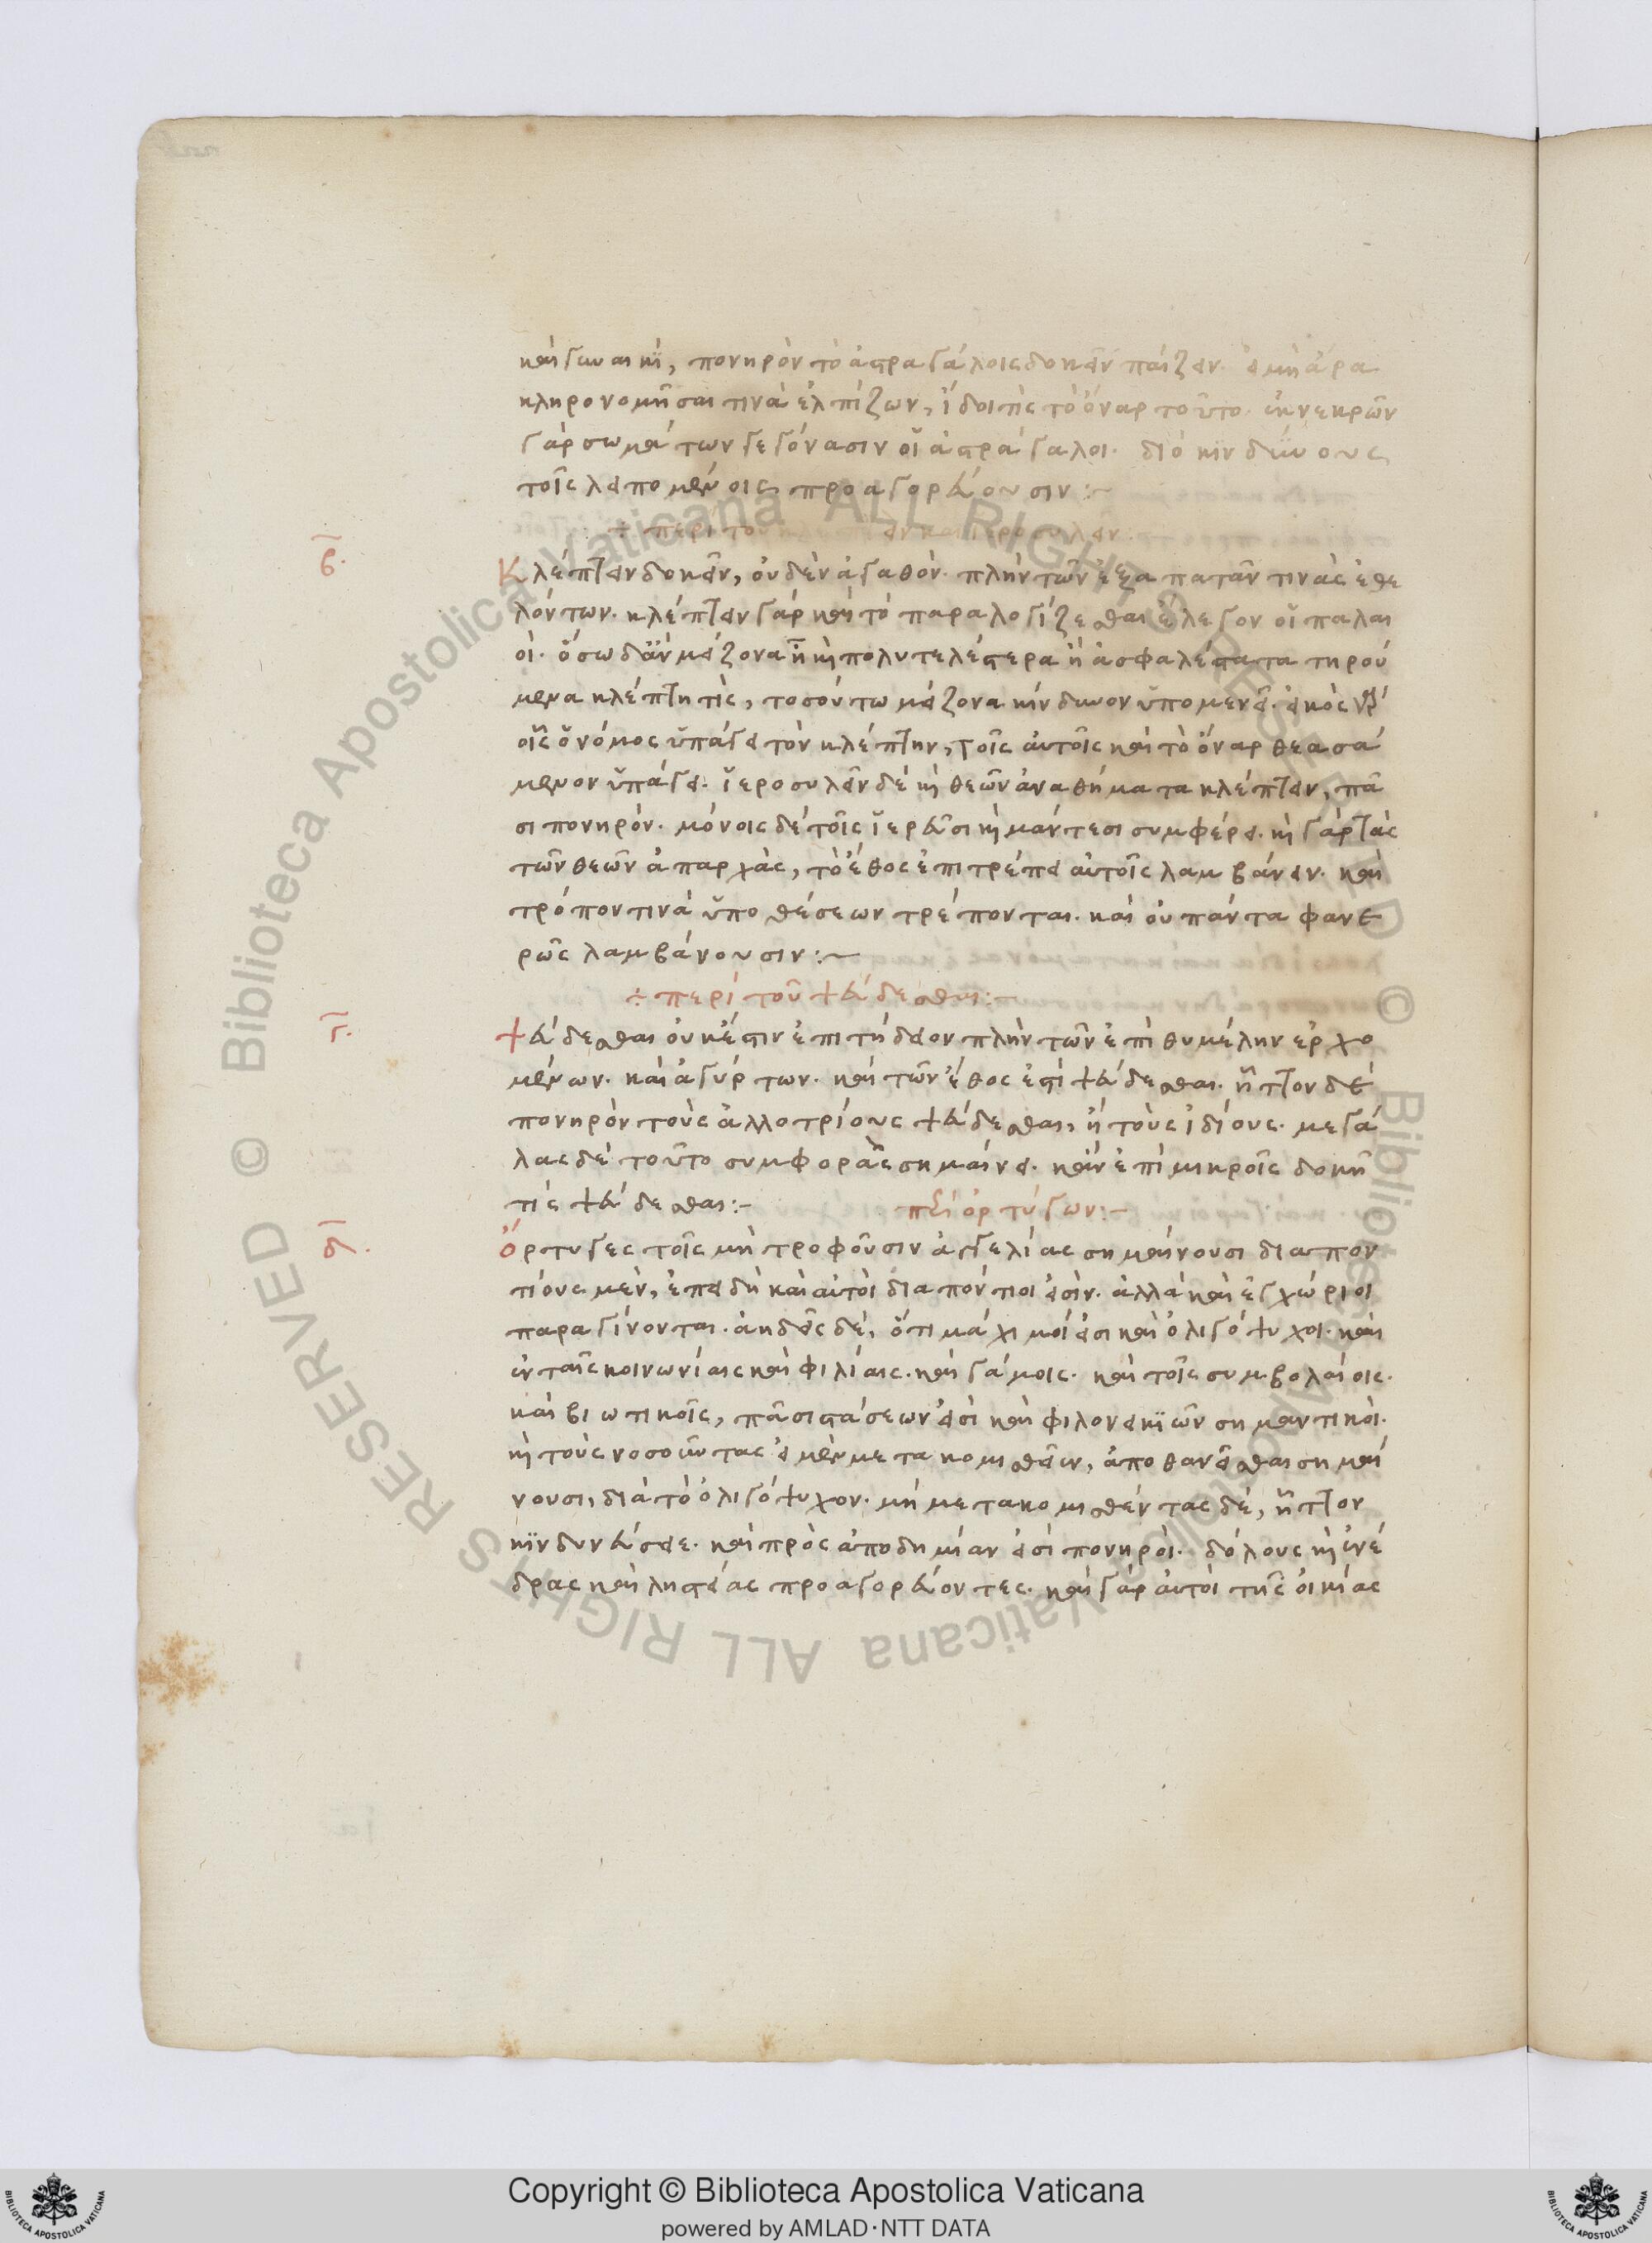 καὶ γυναικὶ, πονηρὸν τὸ ἀστραγάλοις δοκεῖν παίζειν. εἰ μὴ ἄρα
κληρονομῆσαι τινὰ ἐλπίζων, ἴδοι τὶς τὸ ὄναρ τοῦτο. ἐκ νεκρῶν
γὰρ σωμάτων γεγόνασιν οἱ ἀστράγαλοι. διὸ κινδύνους
τοῖς λειπομένοις προαγορεύουσιν:~
+ περὶ τοῦ κλέπτειν καὶ ἱεροσυλεῖν.
β.
Κλέπτειν δοκεῖν, οὐδὲν ἀγαθὸν. πλὴν τῶν ἐξαπατᾶν τινὰς ἐθε
λόντων. κλέπτειν γὰρ καὶ τὸ παραλογίζεσθαι ἔλεγον οἱ παλαι
οὶ. ὅσω δ' ἂν μείζονα ἢ καὶ πολυτελέστερα ἢ ἀσφαλέστατα τηρού
μενα κλέπτη τὶς, τοσούτω μείζονα κίνδυνον ὑπομενεῖ. εἰκὸς γὰρ
οἷς ὁ νόμος ὑπάγει τὸν κλέπτην, τοῖς αὐτοῖς καὶ τὸ ὄναρ θεασά
μενον ὑπάγει. ἱεροσυλεῖν δὲ καὶ θεῶν ἀναθήματα κλέπτειν, πᾶ
σι πονηρόν. μόνοις δὲ τοῖς ἱερεῦσι καὶ μάντεσι συμφέρει. καὶ γὰρ τὰς
τῶν θεῶν ἀπαρχὰς, τὸ ἔθος ἐπιτρέπει αὐτοῖς λαμβάνειν. καὶ
τρόπον τινὰ ὑπὸ θέσεων τρέπονται. καὶ οὐ πάντα φανε
ρῶς λαμβάνουσιν:~
+ περὶ τοῦ ψεύδεσθαι:~
γ.
ψεύδεσθαι οὐκ ἔστιν ἐπιτήδειον πλὴν τῶν ἐπὶ θυμέλην ἐρχο
μένων. καὶ ἀγύρτων. καὶ τῶν ἔθος ἐστὶ ψεύδεσθαι. ἧττον δὲ
πονηρὸν τοὺς ἀλλοτρίους ψεύδεσθαι, ἢ τοὺς ἰδίους. μεγά
λας δὲ τοῦτο συμφορὰς σημαίνει. κἂν ἐπὶ μικροῖς δοκῆ
τὶς ψεύδεσθαι:~ περὶ ὀρτύγων:~
δ.
ὄρτυγες τοῖς μὴ τροφοῦσιν ἀγγελίας σημαίνουσι διαπον
τίους μὲν, ἐπειδὴ καὶ αὐτοὶ διαπόντιοι εἰσὶν. ἀλλὰ καὶ ἐγχώριοι
παραγίνονται. ἀηδεῖς δὲ, ὅτι μάχιμοί εἰσι καὶ ὀλιγόψυχοι. καὶ
ἐν ταῖς κοινωνίαις καὶ φιλίαις. καὶ γάμοις. καὶ τοῖς συμβολαίοις.
καὶ βιωτικοῖς, πᾶσι στάσεων εἰσὶ καὶ φιλονεικιῶν σημαντικοὶ.
καὶ τοὺς νοσοῦντας εἰ μὲν μετακομισθεῖεν, ἀποθανεῖσθαι σημαί
νουσι, διὰ τὸ ὀλιγόψυχον. μὴ μετακομισθέντας δὲ, ἧττον
κινδυνεύσειε. καὶ πρὸς ἀποδημίαν εἰσὶ πονηροὶ. δόλους καὶ ἐνέ
δρας καὶ ληστείας προαγορεύοντες. καὶ γὰρ αὐτοὶ τῆς οἰκίας
Copyright © Biblioteca Apostolica Vaticana
powered by AMLAD·NTT DATA